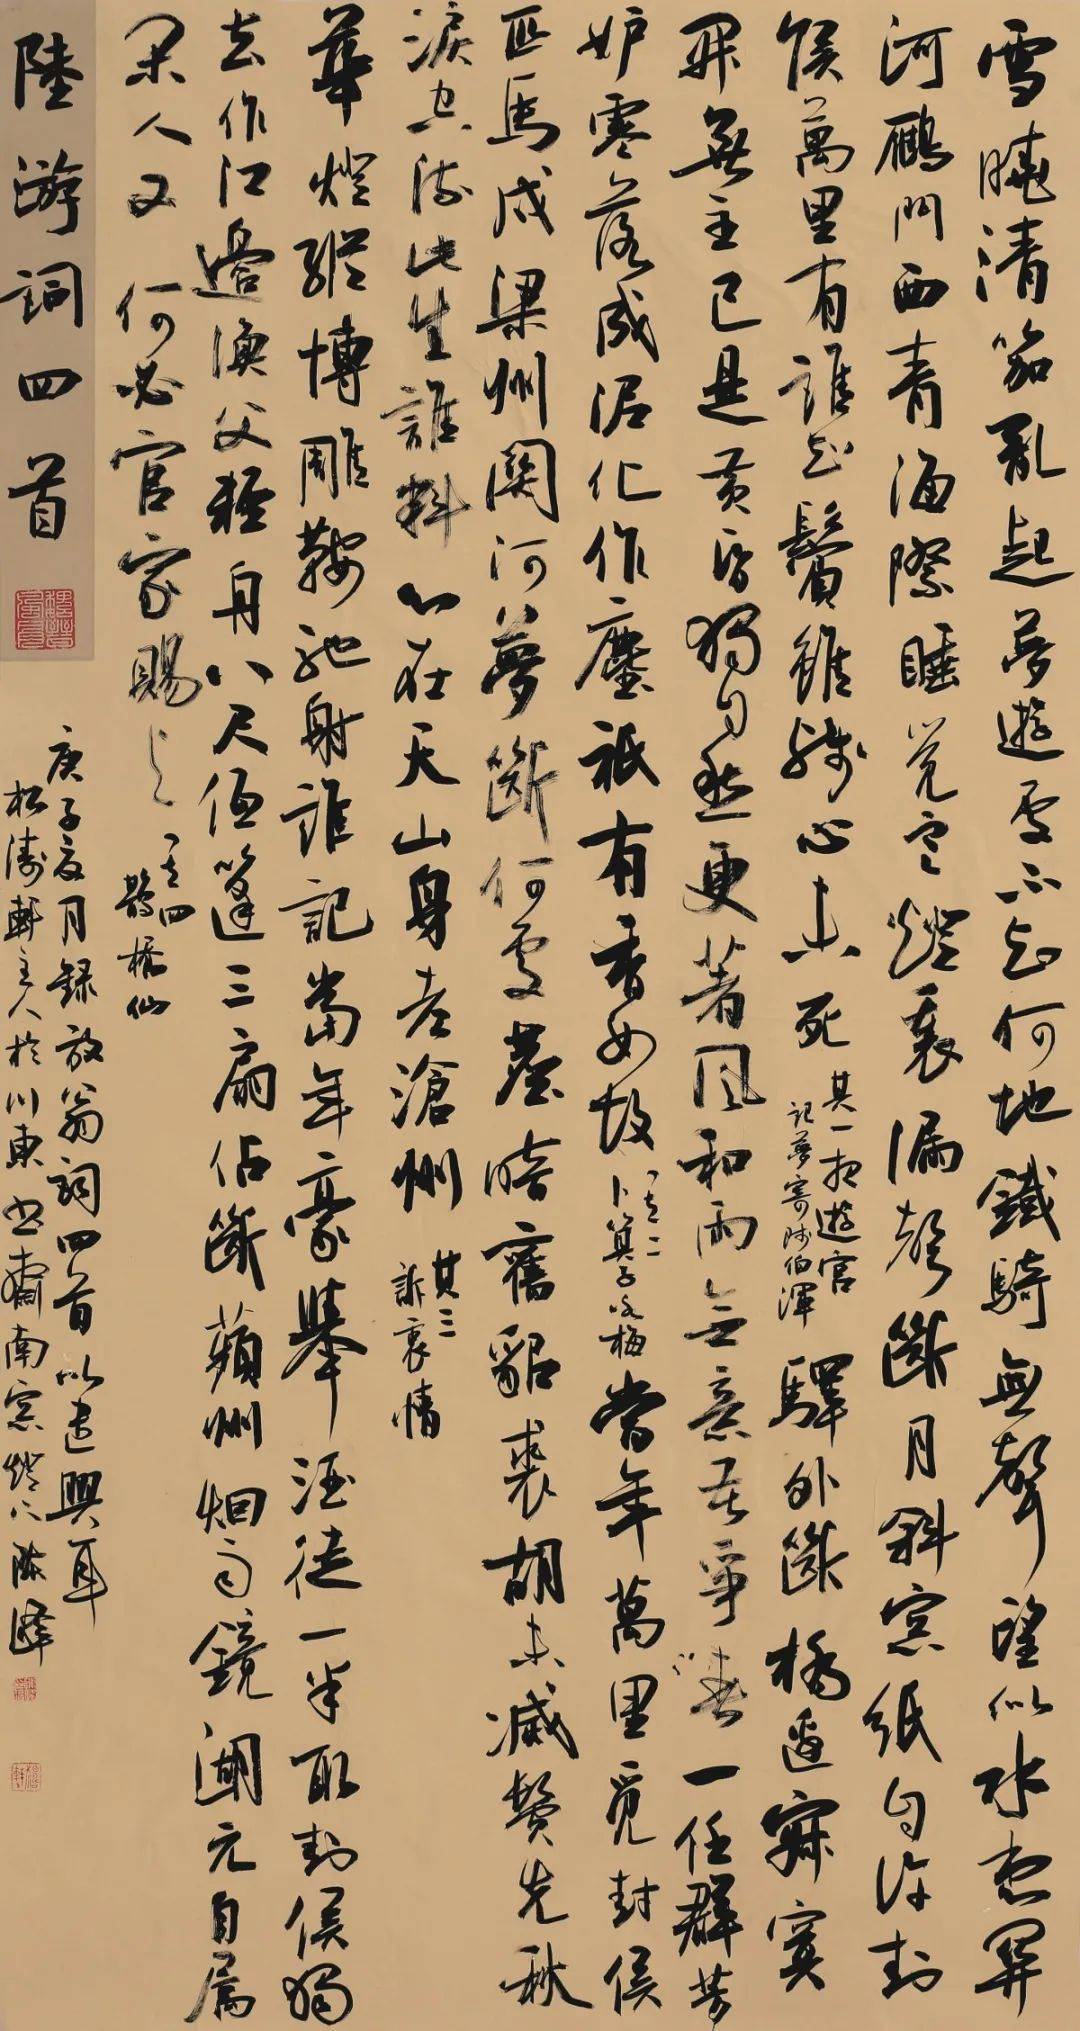 陸游詞四首
雪曉清笳亂起夢遊處不知何地鐵騎無聲望似水想關
河鴈門西青海際睡覺寒燈裏漏聲斷月斜窗紙自許封
侯萬里有誰知鬢雖殘心未死
其一夜遊宮
記夢寄師伯渾
驛外斷橋邊寂寞
開無主已是黃昏獨自愁更著風和雨無意苦爭春一任群芳
妒零落成泥化作塵祇有香如故
其二
卜算子詠梅
當年萬里覓封侯
匹馬戍梁州關河夢斷何處塵暗舊貂裘胡未滅鬢先秋
淚空流此生誰料心在天山身老滄州
其三
訴衷情
華燈縱博雕鞍馳射誰記當年豪舉酒徒一半取封侯獨
去作江邊漁父輕舟八尺低篷三扇佔斷蘋州烟雨鏡湖元自屬
閑人又何必官家賜與
其四
鵲橋仙
庚子夏月錄放翁詞四首以遣興耳
松濤軒主人於川東書齋南窗燈下陳峰